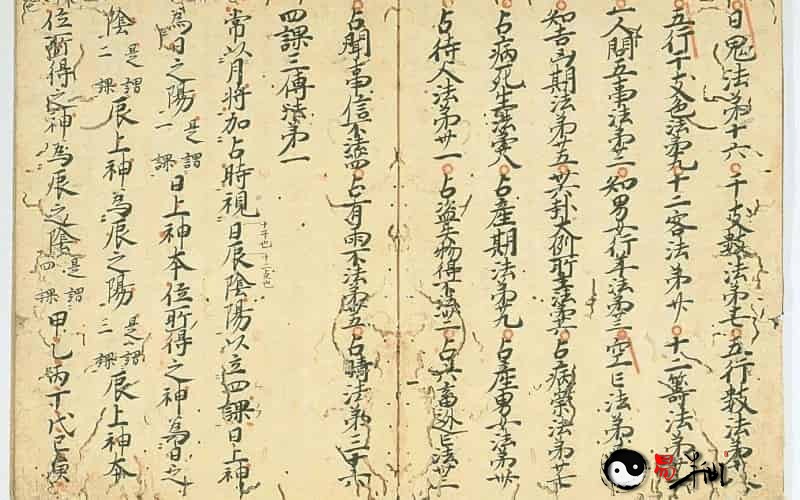 日鬼法第十六 干支数法第十七 五行数法第十八
五行干支色法第十九 十二客法第廿 十二籌法第廿一
一人問五事法第廿二 知男女行年法第廿三 空亡法第廿四
知吉凶期法第廿五 卅六卦大例所主法第廿六 占病祟法第廿七
占病死生法第廿八 占産期法第廿九 占産男女法第卅
占待人法第卅一 占盗失物得不法卅二 占六畜逃亡法卅三
占聞事信不法卅四 占有雨不法第卅五 占晴法第三十六
四課三傳法第一
常以月将加占時視日辰陰陽以立四課日上神
十干也 十二支也
為日之陽 是謂一課 日上神本位所得之神為日之
陰 是謂二課 辰上神為辰之陽 是謂三課 辰上神本
位所得之神為辰之陰 是謂四課 甲乙丙丁戊己庚
易